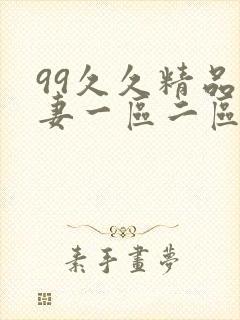 99久久精品
妻一區二區
素手畫夢